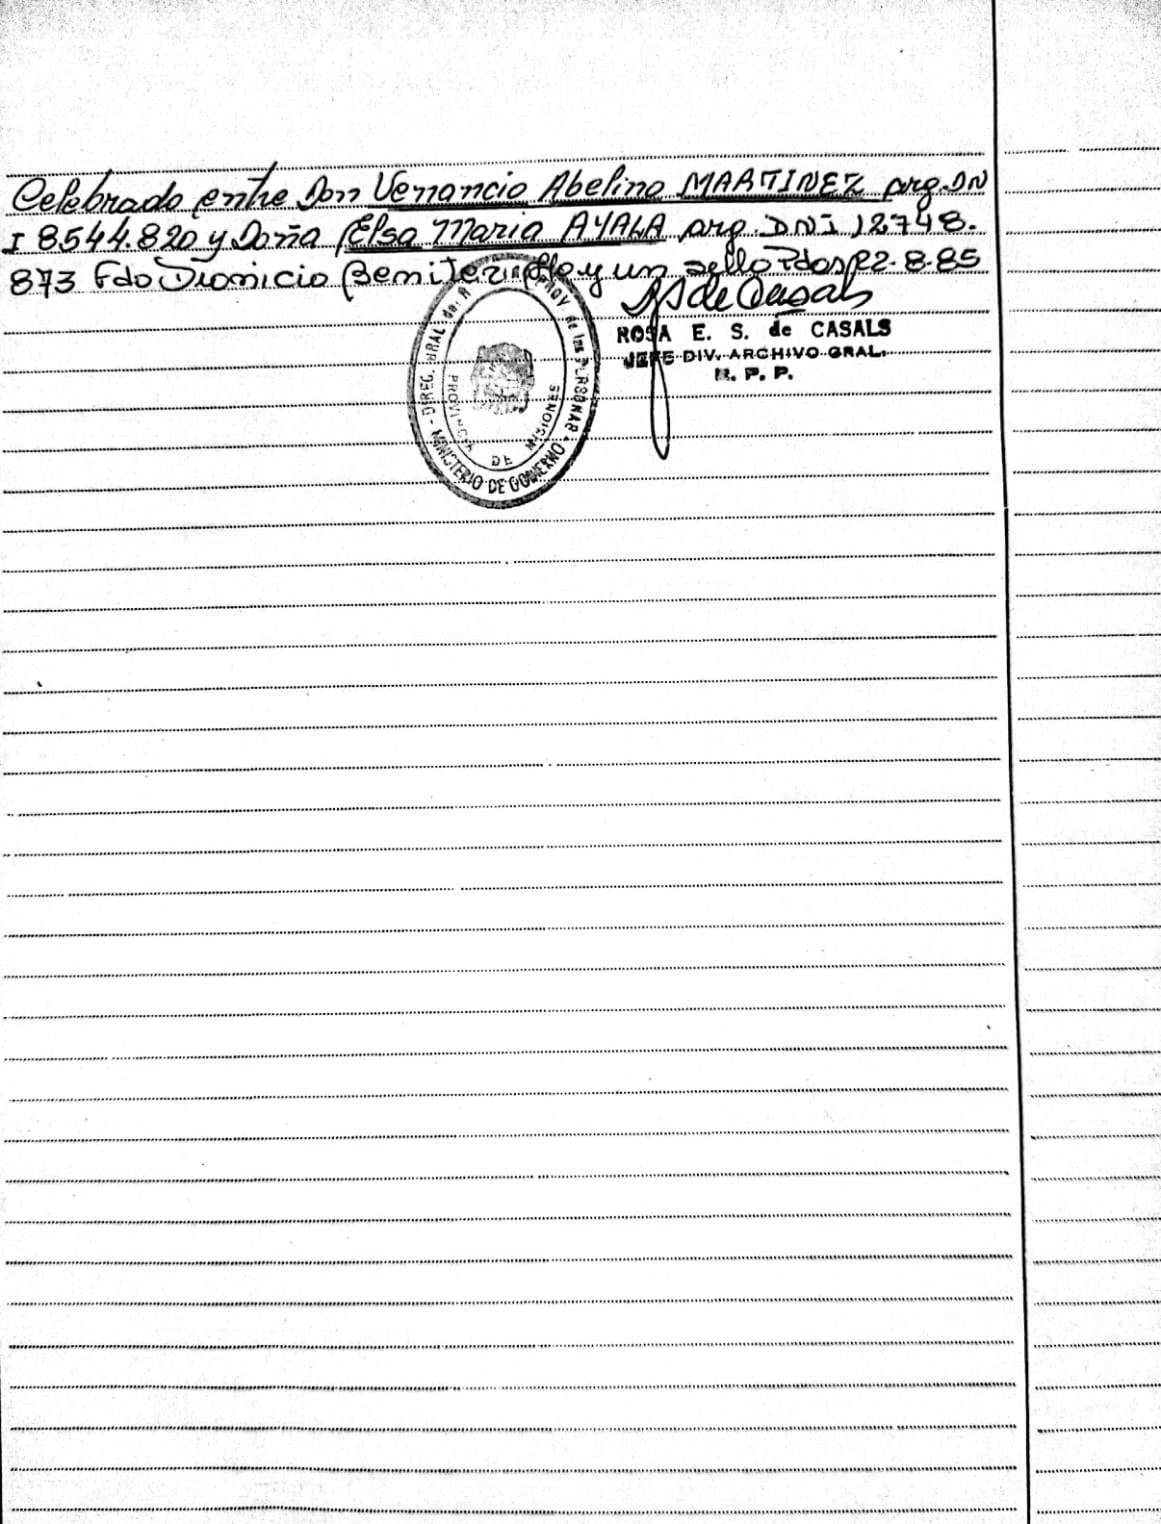 Celebrado entre Don Venancio Abelino MARTINEZ arg. DN
I 8544.820 y Doña Elsa Maria AYALA arg. DNI 12748.
873 Fdo Dionicio Benitez y un sello Pdas 22-8-85
ROSA E. S. de CASALS
JEFE DIV. ARCHIVO GRAL.
R. P. P.
DIREC. GRAL. de R. PROV de las PERSONAS
PROVINCIA DE MISIONES
MINISTERIO DE GOBIERNO